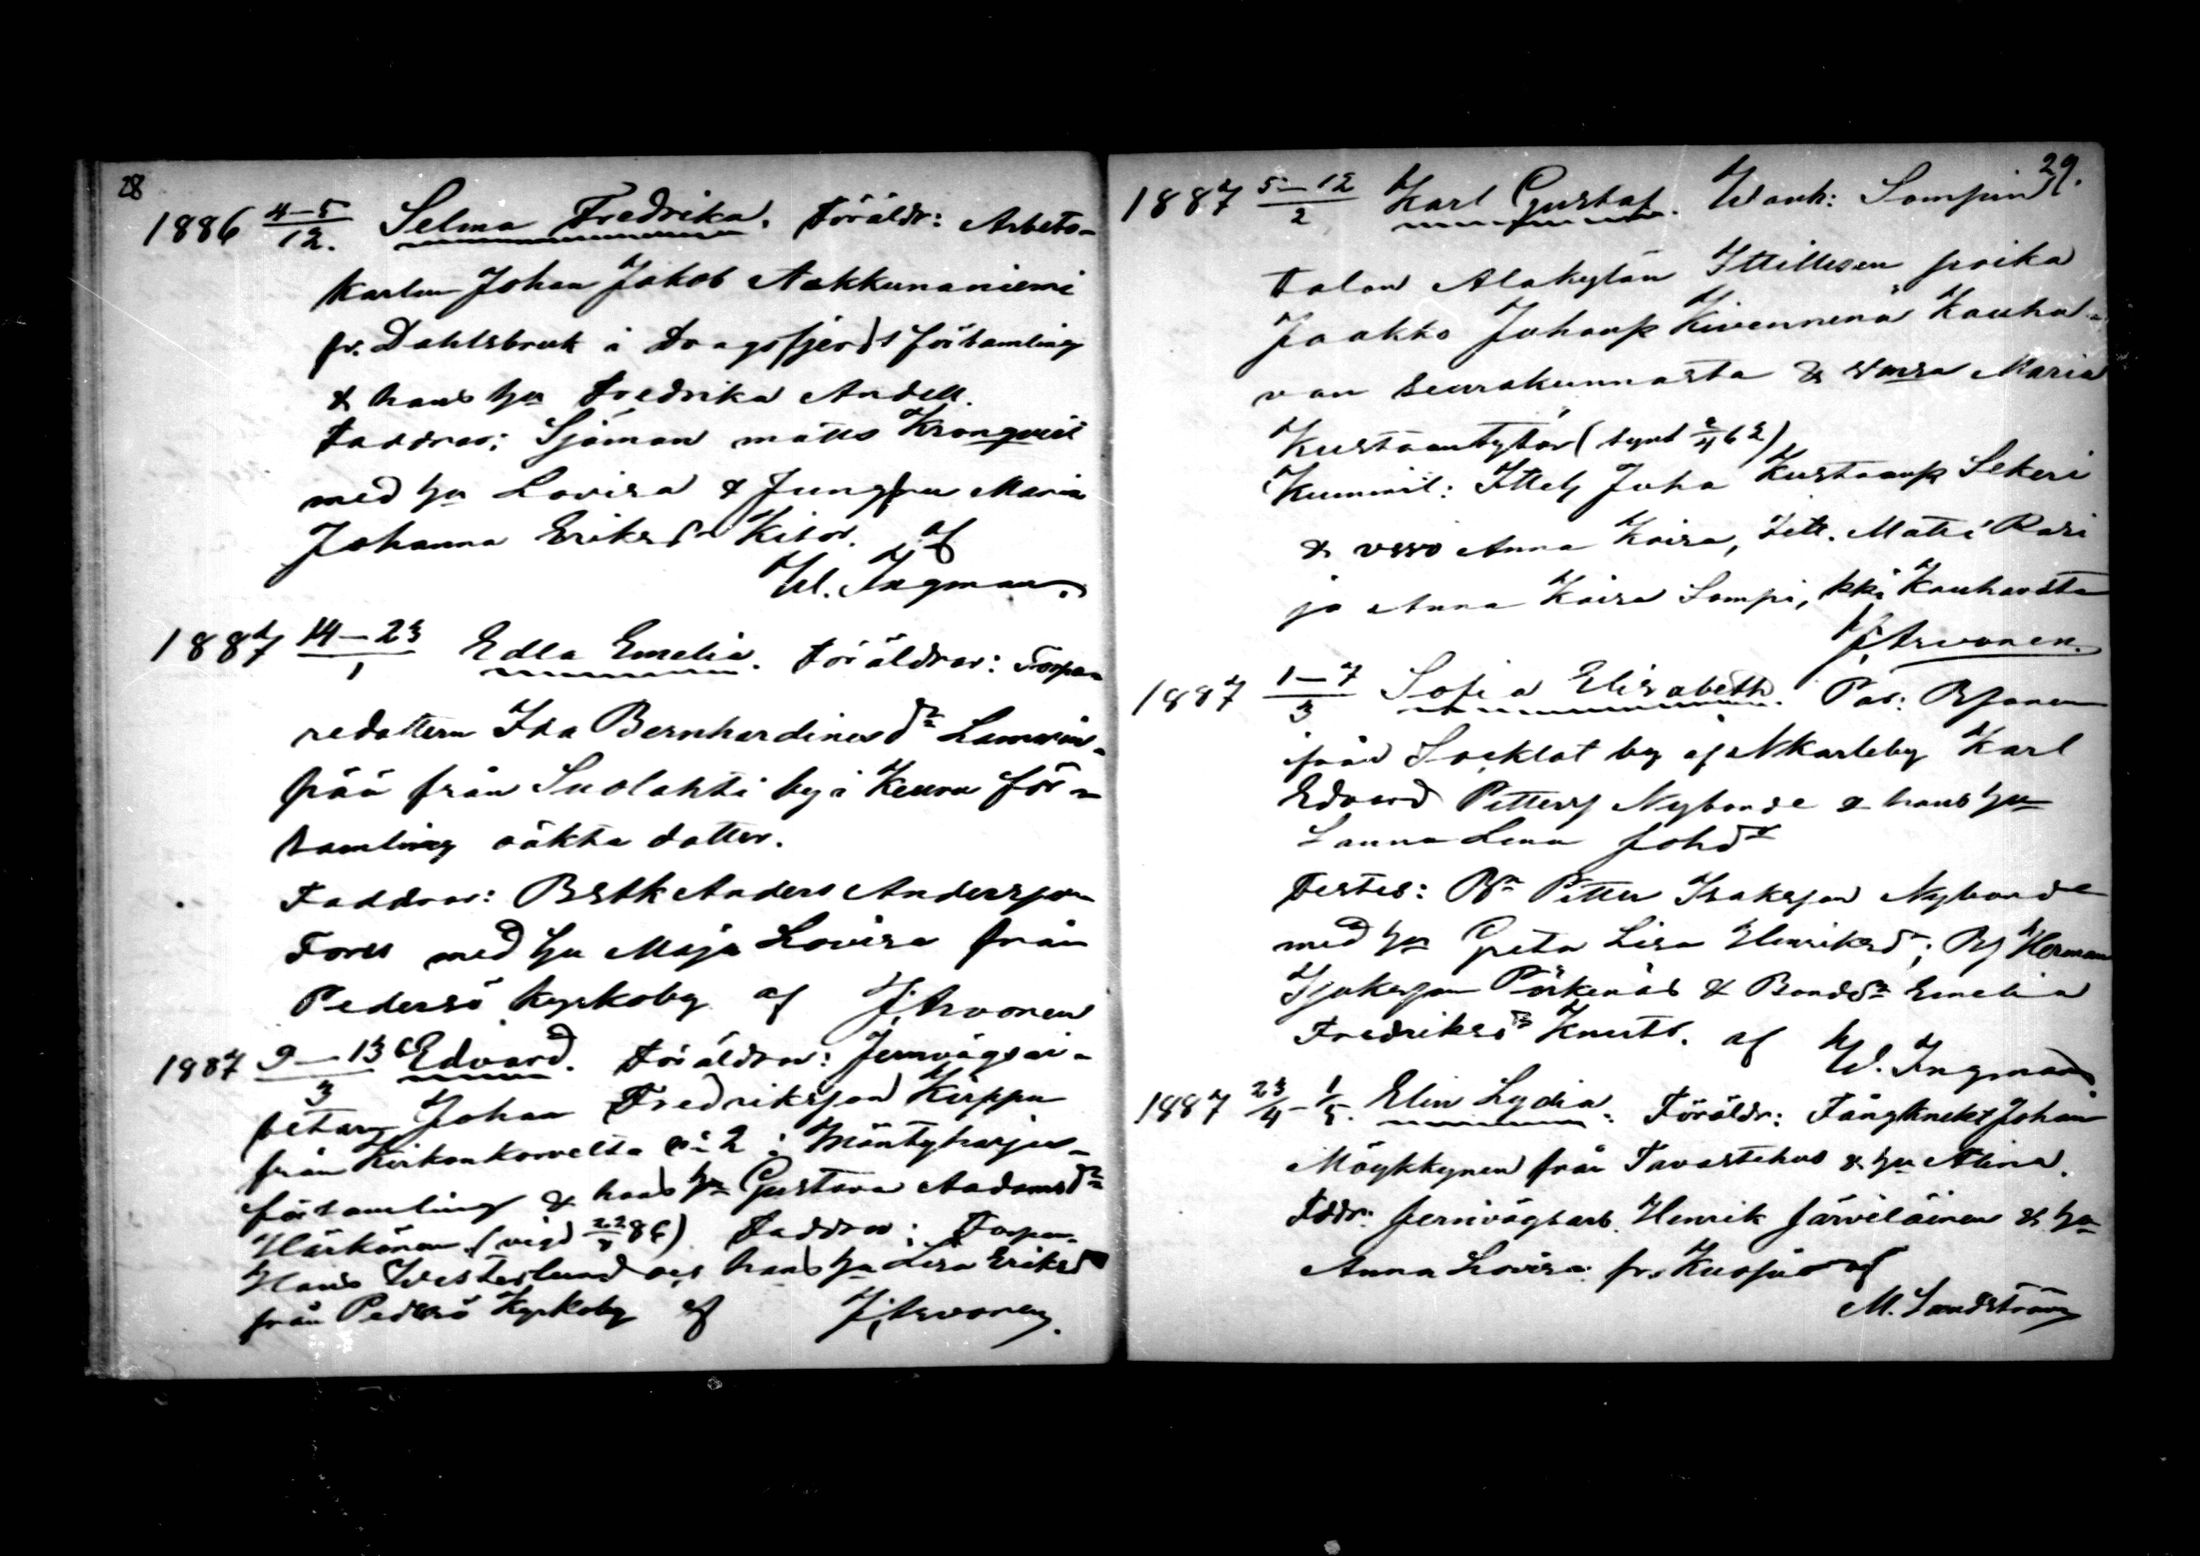 28
1886 4–5/12. Selma Fredrika. Föräldr: Arbets-
karlen Johan Jakob Aakkunaniemi
fr. Dahlsbruk i Dragsfjerds församling
& hans hu Fredrika Andell.
Faddrar: Sjöman Matts Kronqvist
med hu Lovisa & Jungfru Maria
Johanna Eriksdr Kisor. af
W. Ingman.
1887 14–23/1 Edla Emelia. Föräldrar: Torpa-
redottern Ida Bernhardinesdr Lammin
pää från Suolahti by i Keuru för-
samling oäkta dotter.
Faddrar: Bstk Anders Andersson
Fors med hu Maja Lovisa från
Pedersö kyrkoby af J. Arvonen
1887 9–13/3 Edvard. Föräldrar: Jernvägsar-
betare Johan Fredriksson Kirppu
från Kirkonkorvelta no 2 i Mäntyharju-
församling & hans hu Gustava Aadamsdr
Härkönen (vigd 22/ 86) Faddrar: Torpar.
Hans Westerlund och hans hu Lisa Eriksd
från Pedersö Kyrkoby af J. Arvonen.
29.
1887 5–12/2 Karl Gustaf. Wanh: Sompin
talon Alakylän Ittellisen poika
Jaakko Juhanp Kivennenä Kauha-
van seurakunnasta & vmsa Maria
Kustaantytär (synt 2/4 62)
Kummit: Ittell Juha Kustaanp Sekeri
& vmo Anna Kaisa, Itll. Matti Pasi
ja Anna Kaisa Sompi, kki Kauhavalta
J. Arvonen.
1887 1–7/3 Sofia Elisabeth. Par: Bsonen
från Socklot by af Nkarleby Karl
Edvard Petterss Nybonde & hans hu
Sanna Lena Johdr
Testes: Bn Petter Isaksson Nybonde
med hu Greta Lisa Henriksdr; Bs Herman
Isaksson Pörkenäs & Bondedr Emelia
Fredriksdr Knuts. af W. Ingman
1887 23/4–1/5. Elin Lydia. Föräldr: Fångknekt Johan
Möykkynen från Tavastehus & hu Alina.
Fddr: Jernvägsarb. Henrik Järveläinen & hu
Anna Lovisa fr. Kuopio af
M. Sandström